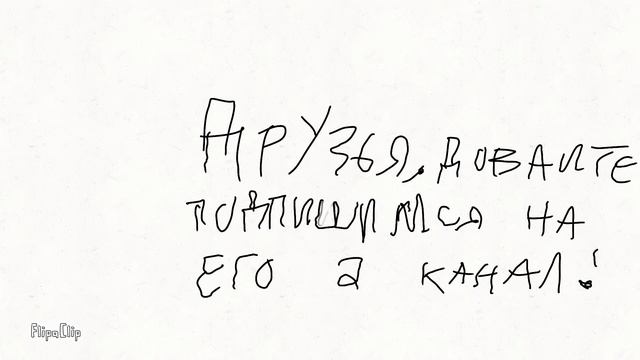 Друзья, довайте
подпишимся на
его 2 канал!
FlipaClip